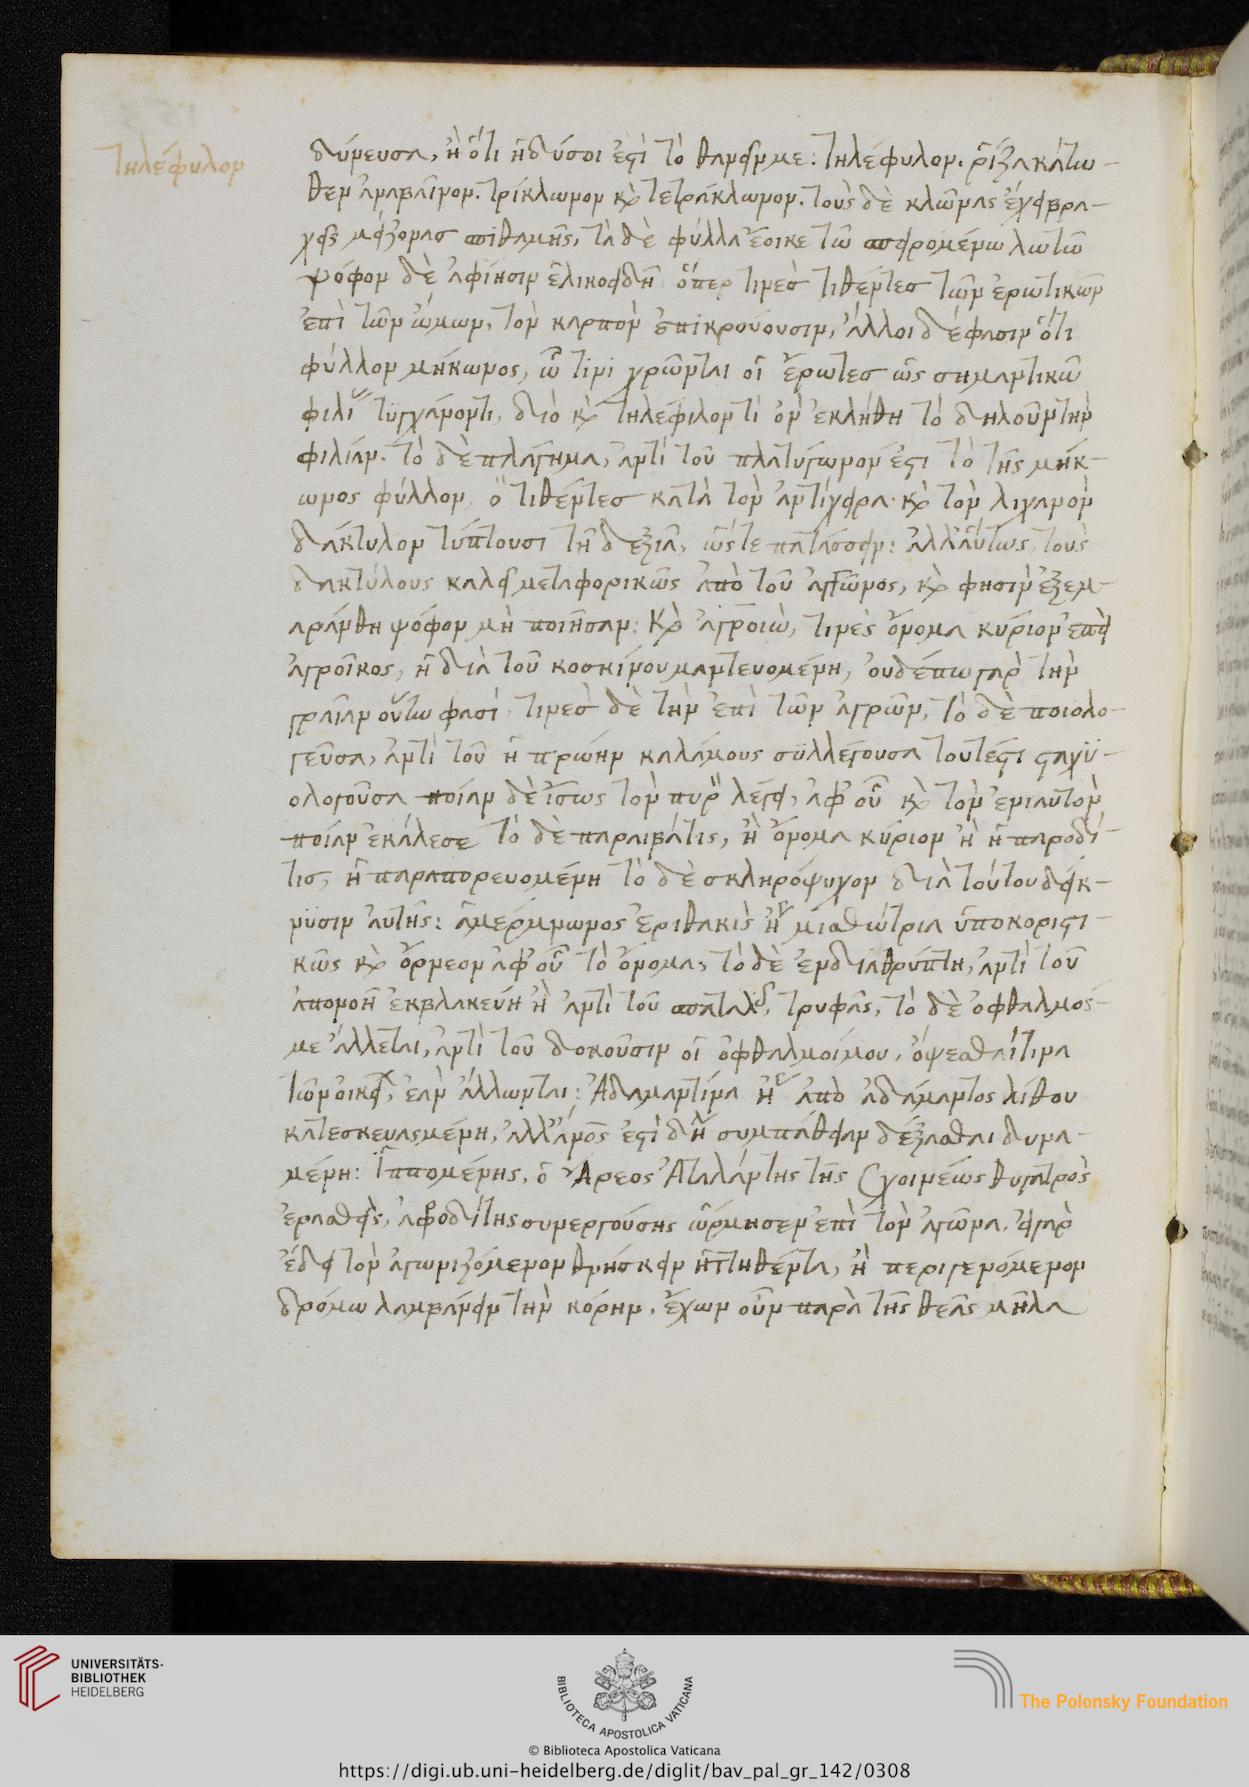 τηλέφυλον
δύνευσα, ἢ ὅτι ἡδύσοι ἐστὶ τὸ θανεῖν με: τηλέφυλον. ῥίζα κάτω-
θεν ἀναβαῖνον. τρίκλωνον καὶ τετράκλωνον. τοὺς δὲ κλῶνας ἔχει βρα-
χεῖς μείζονας σπιθαμῆς, τὰ δὲ φύλλα ἔοικε τῶ σπειρομένω λωτῶ
ψόφον δὲ ἀφίησιν ἑλικοειδῆ ὅπερ τινὲς τιθέντες τῶν ἐρωτικῶν
ἐπὶ τῶν ὤμων, τὸν καρπὸν ἐπικρούουσιν, ἄλλοι δέ φασιν ὅτι
φύλλον μήκωνος, ὧ τινι χρῶνται οἱ ἔρωτες ὡς σημαντικῶ
φιλί τυγχάνοντι, διὸ καὶ τηλέφιλον τὶ ὂν ἐκλήθη τὸ δηλοῦν τὴν
φιλίαν. τὸ δὲ πλάγημα, ἀντὶ τοῦ πλατυγώνον ἐστι τὸ τῆς μήκ-
ωνος φύλλον, ὃ τιθέντες κατὰ τὸν ἀντίχειρα καὶ τὸν λιχανὸν
δάκτυλον τύπτουσι τῆ δεξιᾶ, ὥστε πατάσσειν: ἀλλ' αὕτως τοὺς
δακτύλους καλεῖ μεταφορικῶς ἀπὸ τοῦ ἀγῶνος, καὶ φησιν ἐξεμ-
αράνθη ψόφον μὴ ποιῆσαν: Καὶ ἀγροιὼ, τινὲς ὄνομα κύριον ἐπεὶ
ἀγροῖκος, ἡ διὰ τοῦ κοσκίνου μαντευομένη, οὐδέπω γὰρ τὴν
γραῖαν οὕτω φασί. τινὲς δὲ τὴν ἐπὶ τῶν ἀγρῶν, τὸ δὲ ποιολο-
γεῦσα, ἀντὶ τοῦ ἡ πρώην καλάμους συλλέγουσα τουτέστι σταχυ-
ολογοῦσα ποίαν δὲ ἴσως τὸν πυρὸν λέγει, ἀφ' οὗ καὶ τὸν ἐνιαυτὸν
ποίαν ἐκάλεσε τὸ δὲ παραιβάτις, ἢ ὄνομα κύριον ἢ ἡ παροδί-
τις, ἡ παραπορευομένη τὸ δὲ σκληρόψυχον διὰ τούτου δείκ-
νυσιν αὐτῆς: ἁ μέρμνωνος ἐριθακὶς ἡ μισθώτρια ὑποκοριστι-
κῶς καὶ ὄρνεον ἀφ' οὗ τὸ ὄνομα, τὸ δὲ ἐνδιαθρύπτη, ἀντὶ τοῦ
ἀπονοῆ ἐκβλακεύη ἢ ἀντὶ τοῦ σπαταλᾶς, τρυφᾶς, τὸ δὲ ὀφθαλμός
με ἅλλεται, ἀντὶ τοῦ δοκοῦσιν οἱ ὀφθαλμοίμου, ὄψεσθαί τινα
τῶν οἰκείων, ἐὰν ἅλλωνται: Ἀδαμαντίνα ἡ ἀπὸ ἀδάμαντος λίθου
κατεσκευασμένη, ἀλλ' ἄνος ἐστὶ δηλ συμπάθειαν δέξασθαι δυνα-
μένη: Ἱππομένης, ὁ Ἄρεος Ἀταλάντης τῆς Σχοινέως θυγατρὸς
ἐρασθεὶς, ἀφροδίτης συνεργούσης ὥρμησεν ἐπὶ τὸν ἀγῶνα, εἰ γὰρ
ἔδει τὸν ἀγωνιζόμενον θνήσκειν ἡττηθέντα, ἢ περιγενόμενον
δρόμω λαμβάνειν τὴν κόρην, ἔχων οὖν παρὰ τῆς θεᾶς μῆλα
UNIVERSITÄTS-
BIBLIOTHEK
HEIDELBERG
BIBLIOTECA APOSTOLICA VATICANA
The Polonsky Foundation
© Biblioteca Apostolica Vaticana
https://digi.ub.uni-heidelberg.de/diglit/bav_pal_gr_142/0308